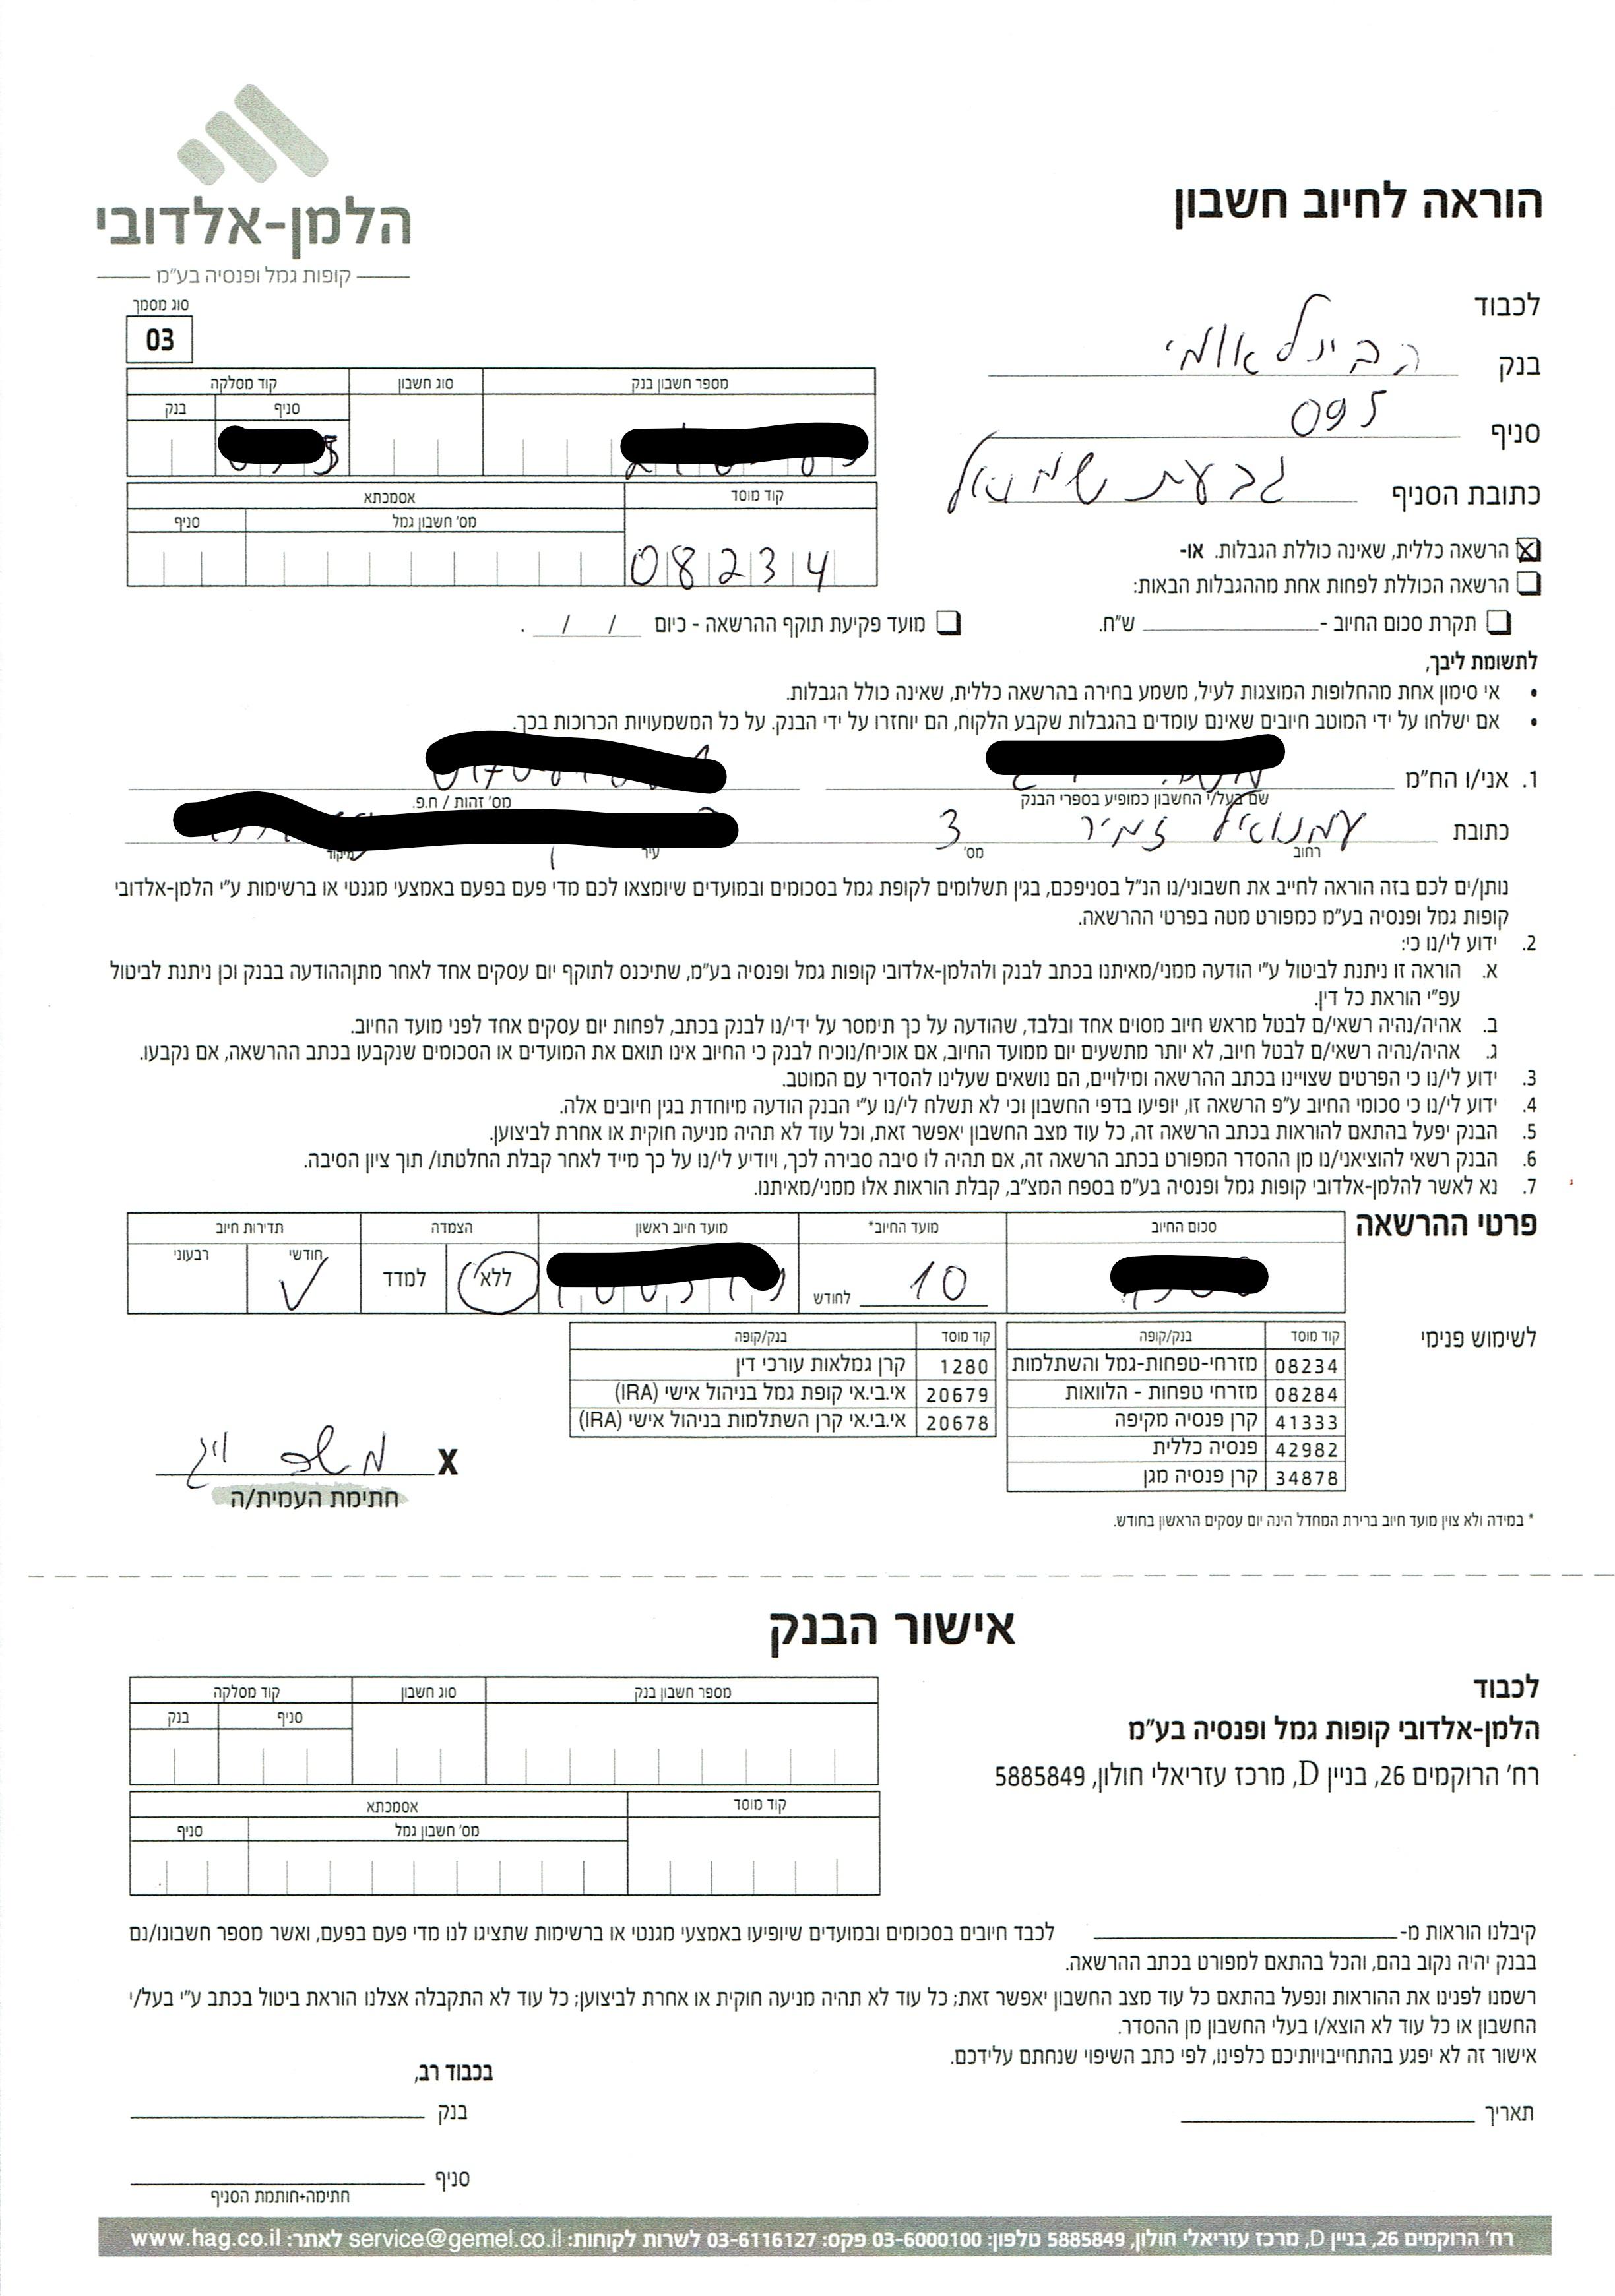 הלמן-אלדובי
קופות גמל ופנסיה בע״מ
הוראה לחיוב חשבון
לכבוד
בנק הבינלאומי
סניף 095
כתובת הסניף גבעת שמואל
סוג מסמך
03
מספר חשבון בנק סוג חשבון קוד מסלקה
סניף בנק
קוד מוסד אסמכתא
מס׳ חשבון גמל סניף
08234
הרשאה כללית, שאינה כוללת הגבלות. או-
הרשאה הכוללת לפחות אחת מההגבלות הבאות:
תקרת סכום החיוב - ש״ח. מועד פקיעת תוקף ההרשאה - כיום / / .
לתשומת ליבך,
• אי סימון אחת מהחלופות המוצגות לעיל, משמע בחירה בהרשאה כללית, שאינה כולל הגבלות.
• אם ישלחו על ידי המוטב חיובים שאינם עומדים בהגבלות שקבע הלקוח, הם יוחזרו על ידי הבנק. על כל המשמעויות הכרוכות בכך.
1. אני/ו הח״מ
שם בעל/י החשבון כמופיע בספרי הבנק מס׳ זהות / ח.פ.
כתובת עמנואל זמיר 3
רחוב מס׳ עיר מיקוד
נותן/ים לכם בזה הוראה לחייב את חשבוני/נו הנ״ל בסניפכם, בגין תשלומים לקופת גמל בסכומים ובמועדים שיומצאו לכם מדי פעם בפעם באמצעי מגנטי או ברשימות ע״י הלמן-אלדובי
קופות גמל ופנסיה בע״מ כמפורט מטה בפרטי ההרשאה.
2. ידוע לי/נו כי:
א. הוראה זו ניתנת לביטול ע״י הודעה ממני/מאיתנו בכתב לבנק ולהלמן-אלדובי קופות גמל ופנסיה בע״מ, שתיכנס לתוקף יום עסקים אחד לאחר מתןההודעה בבנק וכן ניתנת לביטול
עפ״י הוראת כל דין.
ב. אהיה/נהיה רשאי/ם לבטל מראש חיוב מסוים אחד ובלבד, שהודעה על כך תימסר על ידי/נו לבנק בכתב, לפחות יום עסקים אחד לפני מועד החיוב.
ג. אהיה/נהיה רשאי/ם לבטל חיוב, לא יותר מתשעים יום ממועד החיוב, אם אוכיח/נוכיח לבנק כי החיוב אינו תואם את המועדים או הסכומים שנקבעו בכתב ההרשאה, אם נקבעו.
3. ידוע לי/נו כי הפרטים שצויינו בכתב ההרשאה ומילויים, הם נושאים שעלינו להסדיר עם המוטב.
4. ידוע לי/נו כי סכומי החיוב ע״פ הרשאה זו, יופיעו בדפי החשבון וכי לא תשלח לי/נו ע״י הבנק הודעה מיוחדת בגין חיובים אלה.
5. הבנק יפעל בהתאם להוראות בכתב הרשאה זה, כל עוד מצב החשבון יאפשר זאת, וכל עוד לא תהיה מניעה חוקית או אחרת לביצוען.
6. הבנק רשאי להוציאני/נו מן ההסדר המפורט בכתב הרשאה זה, אם תהיה לו סיבה סבירה לכך, ויודיע לי/נו על כך מייד לאחר קבלת החלטתו/ תוך ציון הסיבה.
7. נא לאשר להלמן-אלדובי קופות גמל ופנסיה בע״מ בספח המצ״ב, קבלת הוראות אלו ממני/מאיתנו.
פרטי ההרשאה
סכום החיוב מועד החיוב* מועד חיוב ראשון הצמדה תדירות חיוב
10 לחודש ללא למדד חודשי רבעוני
לשימוש פנימי
קוד מוסד בנק/קופה קוד מוסד בנק/קופה
08234 מזרחי-טפחות-גמל והשתלמות 1280 קרן גמלאות עורכי דין
08284 מזרחי טפחות - הלוואות 20679 אי.בי.אי קופת גמל בניהול אישי (IRA)
41333 קרן פנסיה מקיפה 20678 אי.בי.אי קרן השתלמות בניהול אישי (IRA)
42982 פנסיה כללית
34878 קרן פנסיה מגן
X
חתימת העמית/ה
* במידה ולא צוין מועד חיוב ברירת המחדל הינה יום עסקים הראשון בחודש.
אישור הבנק
לכבוד
הלמן-אלדובי קופות גמל ופנסיה בע״מ
רח׳ הרוקמים 26, בניין D, מרכז עזריאלי חולון, 5885849
מספר חשבון בנק סוג חשבון קוד מסלקה
סניף בנק
קוד מוסד אסמכתא
מס׳ חשבון גמל סניף
קיבלנו הוראות מ- לכבד חיובים בסכומים ובמועדים שיופיעו באמצעי מגנטי או ברשימות שתציגו לנו מדי פעם בפעם, ואשר מספר חשבונו/נם
בבנק יהיה נקוב בהם, והכל בהתאם למפורט בכתב ההרשאה.
רשמנו לפנינו את ההוראות ונפעל בהתאם כל עוד מצב החשבון יאפשר זאת; כל עוד לא תהיה מניעה חוקית או אחרת לביצוען; כל עוד לא התקבלה אצלנו הוראת ביטול בכתב ע״י בעל/י
החשבון או כל עוד לא הוצא/ו בעלי החשבון מן ההסדר.
אישור זה לא יפגע בהתחייבויותיכם כלפינו, לפי כתב השיפוי שנחתם עלידכם.
בכבוד רב,
תאריך בנק
סניף
חתימה+חותמת הסניף
רח׳ הרוקמים 26, בניין D, מרכז עזריאלי חולון, 5885849 טלפון: 03-6000100 פקס: 03-6116127 לשרות לקוחות: service@gemel.co.il לאתר: www.hag.co.il